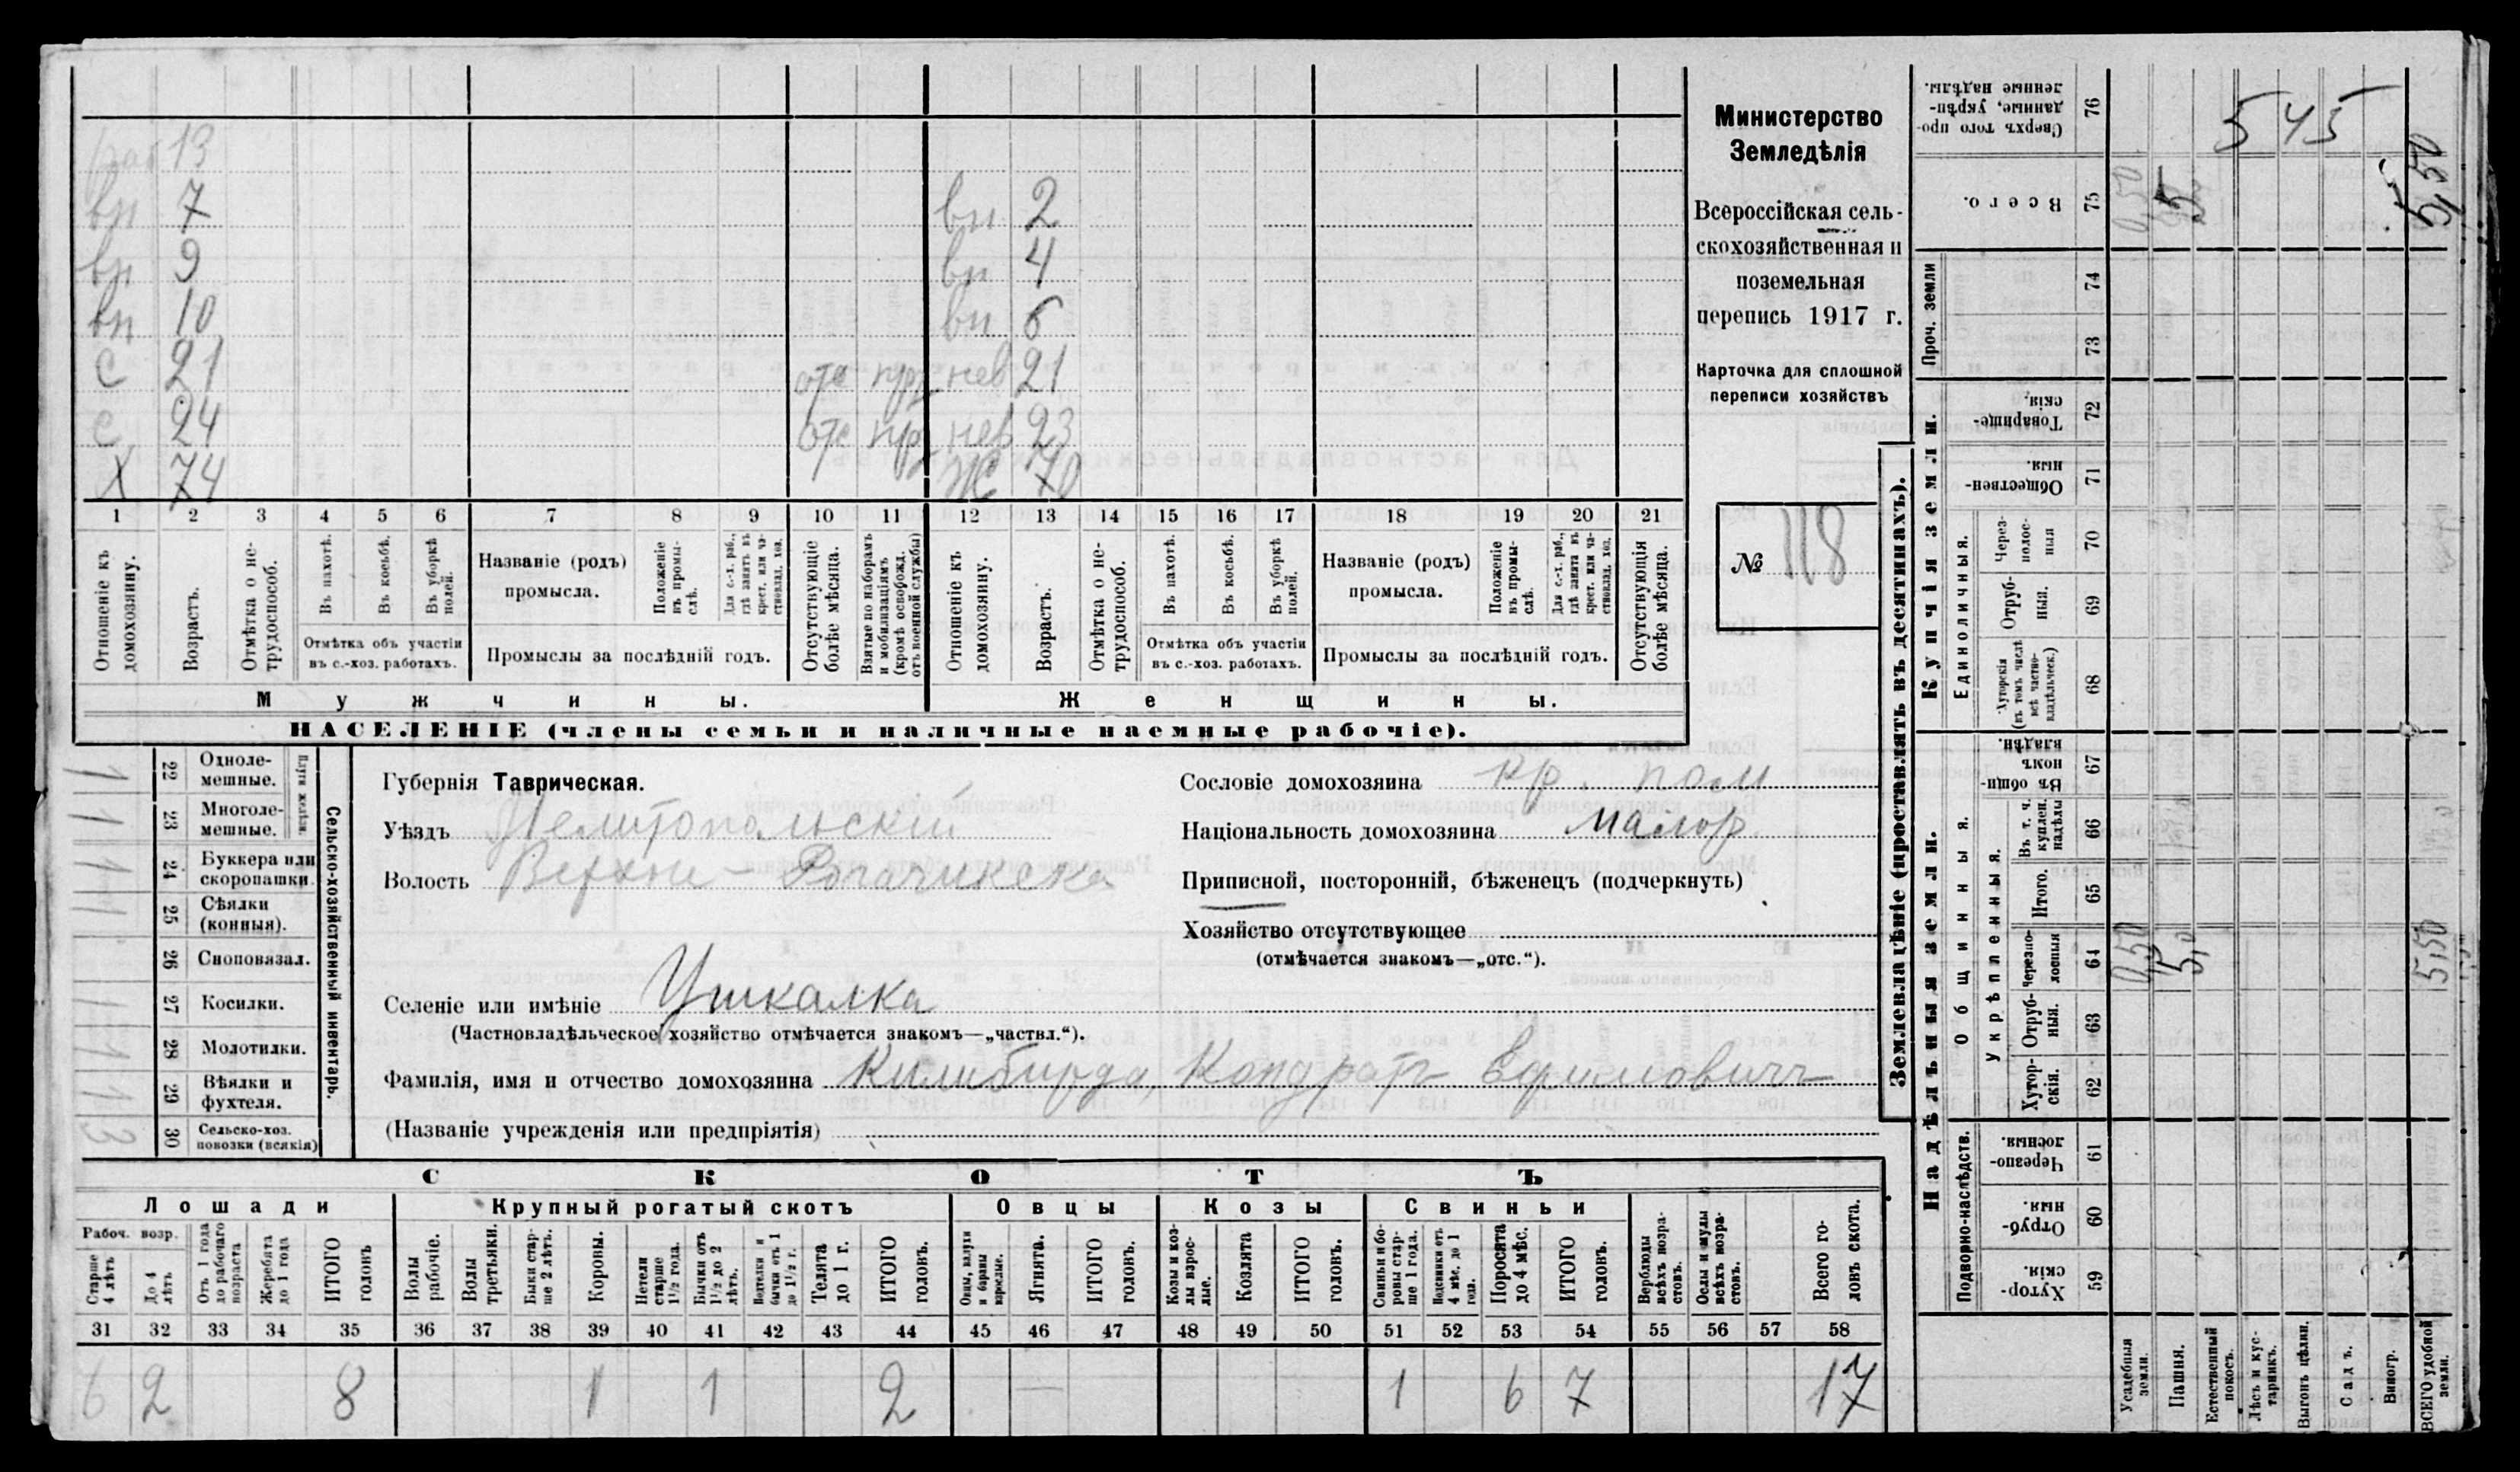 раб 13
вн 7 вн 2
вн 9 вн 4
вн 10 вн 6
с 21 отс пр нев 21
с 24 отс пр нев 23
Х 74 Ж 70
1 2 3 4 5 6 7 8 9 10 11 12 13 14 15 16 17 18 19 20 21
Отношеніе къ домохозяину.
Возрастъ.
Отмѣтка о не-трудоспособ.
Въ пахотѣ.
Въ косьбѣ.
Въ уборкѣ полей.
Отмѣтка объ участіи
въ с.-хоз. работахъ.
Названіе (родъ)
промысла.
Положеніе въ промы-слѣ.
Для с.-х. раб., гдѣ занятъ въ крест. или ча-стновлад. хоз.
Промыслы за послѣдній годъ.
Отсутствующіе болѣе мѣсяца.
Взятые по наборамъ и мобилизаціямъ (кромѣ освобожд. отъ военной службы)
Отношеніе къ домохозяину.
Возрастъ.
Отмѣтка о не-трудоспособ.
Въ пахотѣ.
Въ косьбѣ.
Въ уборкѣ полей.
Отмѣтка объ участіи
въ с.-хоз. работахъ.
Названіе (родъ)
промысла.
Положеніе въ промы-слѣ.
Для с.-х. раб., гдѣ занята въ крест. или ча-стновлад. хоз.
Промыслы за послѣдній годъ.
Отсутствующія болѣе мѣсяца.
Мужчины. Женщины.
НАСЕЛЕНІЕ (члены семьи и наличные наемные рабочіе).
Министерство
Земледѣлія
Всероссійская сель-
скохозяйственная и
поземельная
перепись 1917 г.
Карточка для сплошной
переписи хозяйствъ
№ 118
22 Однолемешные.
23 Многолемешные.
Плуги желѣзн.
24 Буккера или скоропашки.
25 Сѣялки (конныя).
26 Сноповязал.
27 Косилки.
28 Молотилки.
29 Вѣялки и фухтеля.
30 Сельско-хоз. повозки (всякія)
Сельско-хозяйственный инвентарь.
Губернія Таврическая.
Уѣздъ Мелитопольскій
Волость Верхне-Рогачикска
Селеніе или имѣніе Ушкалка
(Частновладѣльческое хозяйство отмѣчается знакомъ—„частвл.“).
Фамилія, имя и отчество домохозяина Килибирда, Кондратъ Ефимовичъ
(Названіе учрежденія или предпріятія)
Сословіе домохозяина кр. пос
Національность домохозяина малор.
Приписной, посторонній, бѣженецъ (подчеркнуть)
Хозяйство отсутствующее
(отмѣчается знакомъ—„отс.“).
СКОТЪ
Лошади Крупный рогатый скотъ Овцы Козы Свиньи
Рабоч. возр.
Старше 4 лѣтъ
До 4 лѣтъ
Отъ 1 года до рабочаго возраста
Жеребята до 1 года
ИТОГО головъ
Волы рабочіе.
Волы третьяки.
Быки стар-ше 2 лѣтъ.
Коровы.
Нетели старше 1½ года.
Бычки отъ 1½ до 2 лѣтъ.
Подтелки и бычки отъ 1 до 1½ г.
Телята до 1 г.
ИТОГО головъ.
Овцы, валухи и бараны взрослые.
Ягнята.
ИТОГО головъ.
Козы и коз-лы взрос-лые.
Козлята
ИТОГО головъ.
Свиньи и бо-ровы стар-ше 1 года.
Подсвинки отъ 4 мѣс. до 1 года.
Поросята до 4 мѣс.
ИТОГО головъ.
Верблюды всѣхъ возра-стовъ.
Ослы и мулы всѣхъ возра-стовъ.
Всего го-ловъ скота.
31 32 33 34 35 36 37 38 39 40 41 42 43 44 45 46 47 48 49 50 51 52 53 54 55 56 57 58
6 2 8 1 1 2 — 1 6 7 17
Землевладѣніе (проставлять въ десятинахъ).
Надѣльныя земли. Купчія земли. Проч. земли
Подворно-наслѣдств.
Общинныя.
Укрѣпленныя.
Единоличныя.
Сверхъ того про-данные, укрѣп-ленные надѣлы. 76 545
Всего. 75 0,50 5 5,50
74
73
Товарище-скія. 72
Обществен-ныя. 71
Через-полос-ныя 70
Отруб-ныя. 69
Хуторскія (въ томъ числѣ всѣ частно-владѣльческ.) 68
Въ общи номъ владѣн. 67
Въ т. ч. куплен. надѣлы 66
Итого. 65
Черезпо-лосныя 64 0,50 5,0 5,50
Отруб-ныя. 63
Хутор-скія. 62
Черезпо-лосныя. 61
Отруб-ныя. 60
Хутор-скія. 59
Усадебныя земли.
Пашня.
Естественный покосъ.
Лѣсъ и кус-тарникъ.
Выгонъ цѣлин.
Садъ.
Виногр.
ВСЕГО удобной земли.